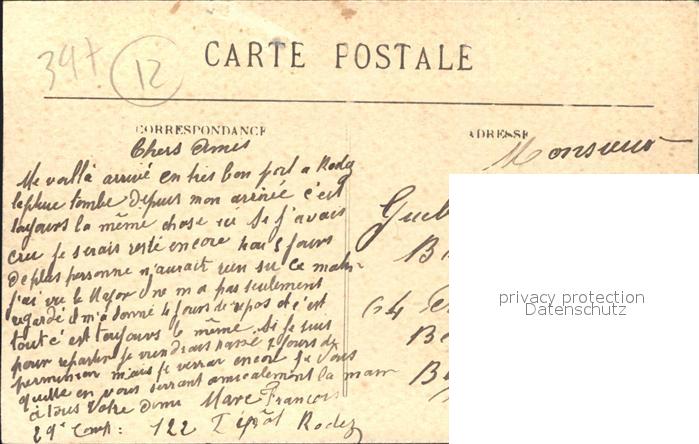 397 12
CARTE POSTALE
CORRESPONDANCE
ADRESSE
Chers Amis
Monsieur
Me voillà arrivé en très bon port a Rodez
la pluie tombe depuis mon arrivée c'est
toujours la même chose ici Si j'avais
cru je serais resté encore 4 ou 5 jours
de plus personne n'aurait rien su Ce matin
j'ai vu le Major il ne m'a pas seulement
regardé il m'a donné 4 jours de repos et c'est
tout c'est toujours le même. Si je suis
pour repartir je viendrais passer 7 jours de
permission mais je verrai encore Je vous
quitte en vous serrant amicalement la main
à tous Votre ami Marc François
29e Comp: 122 Dépôt Rodez
privacy protection
Datenschutz